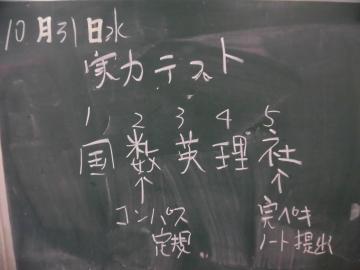 10月31日水
実力テスト
1 2 3 4 5
国数英理社
↑ ↑
コンパス 完ペキ
定規 ノート提出